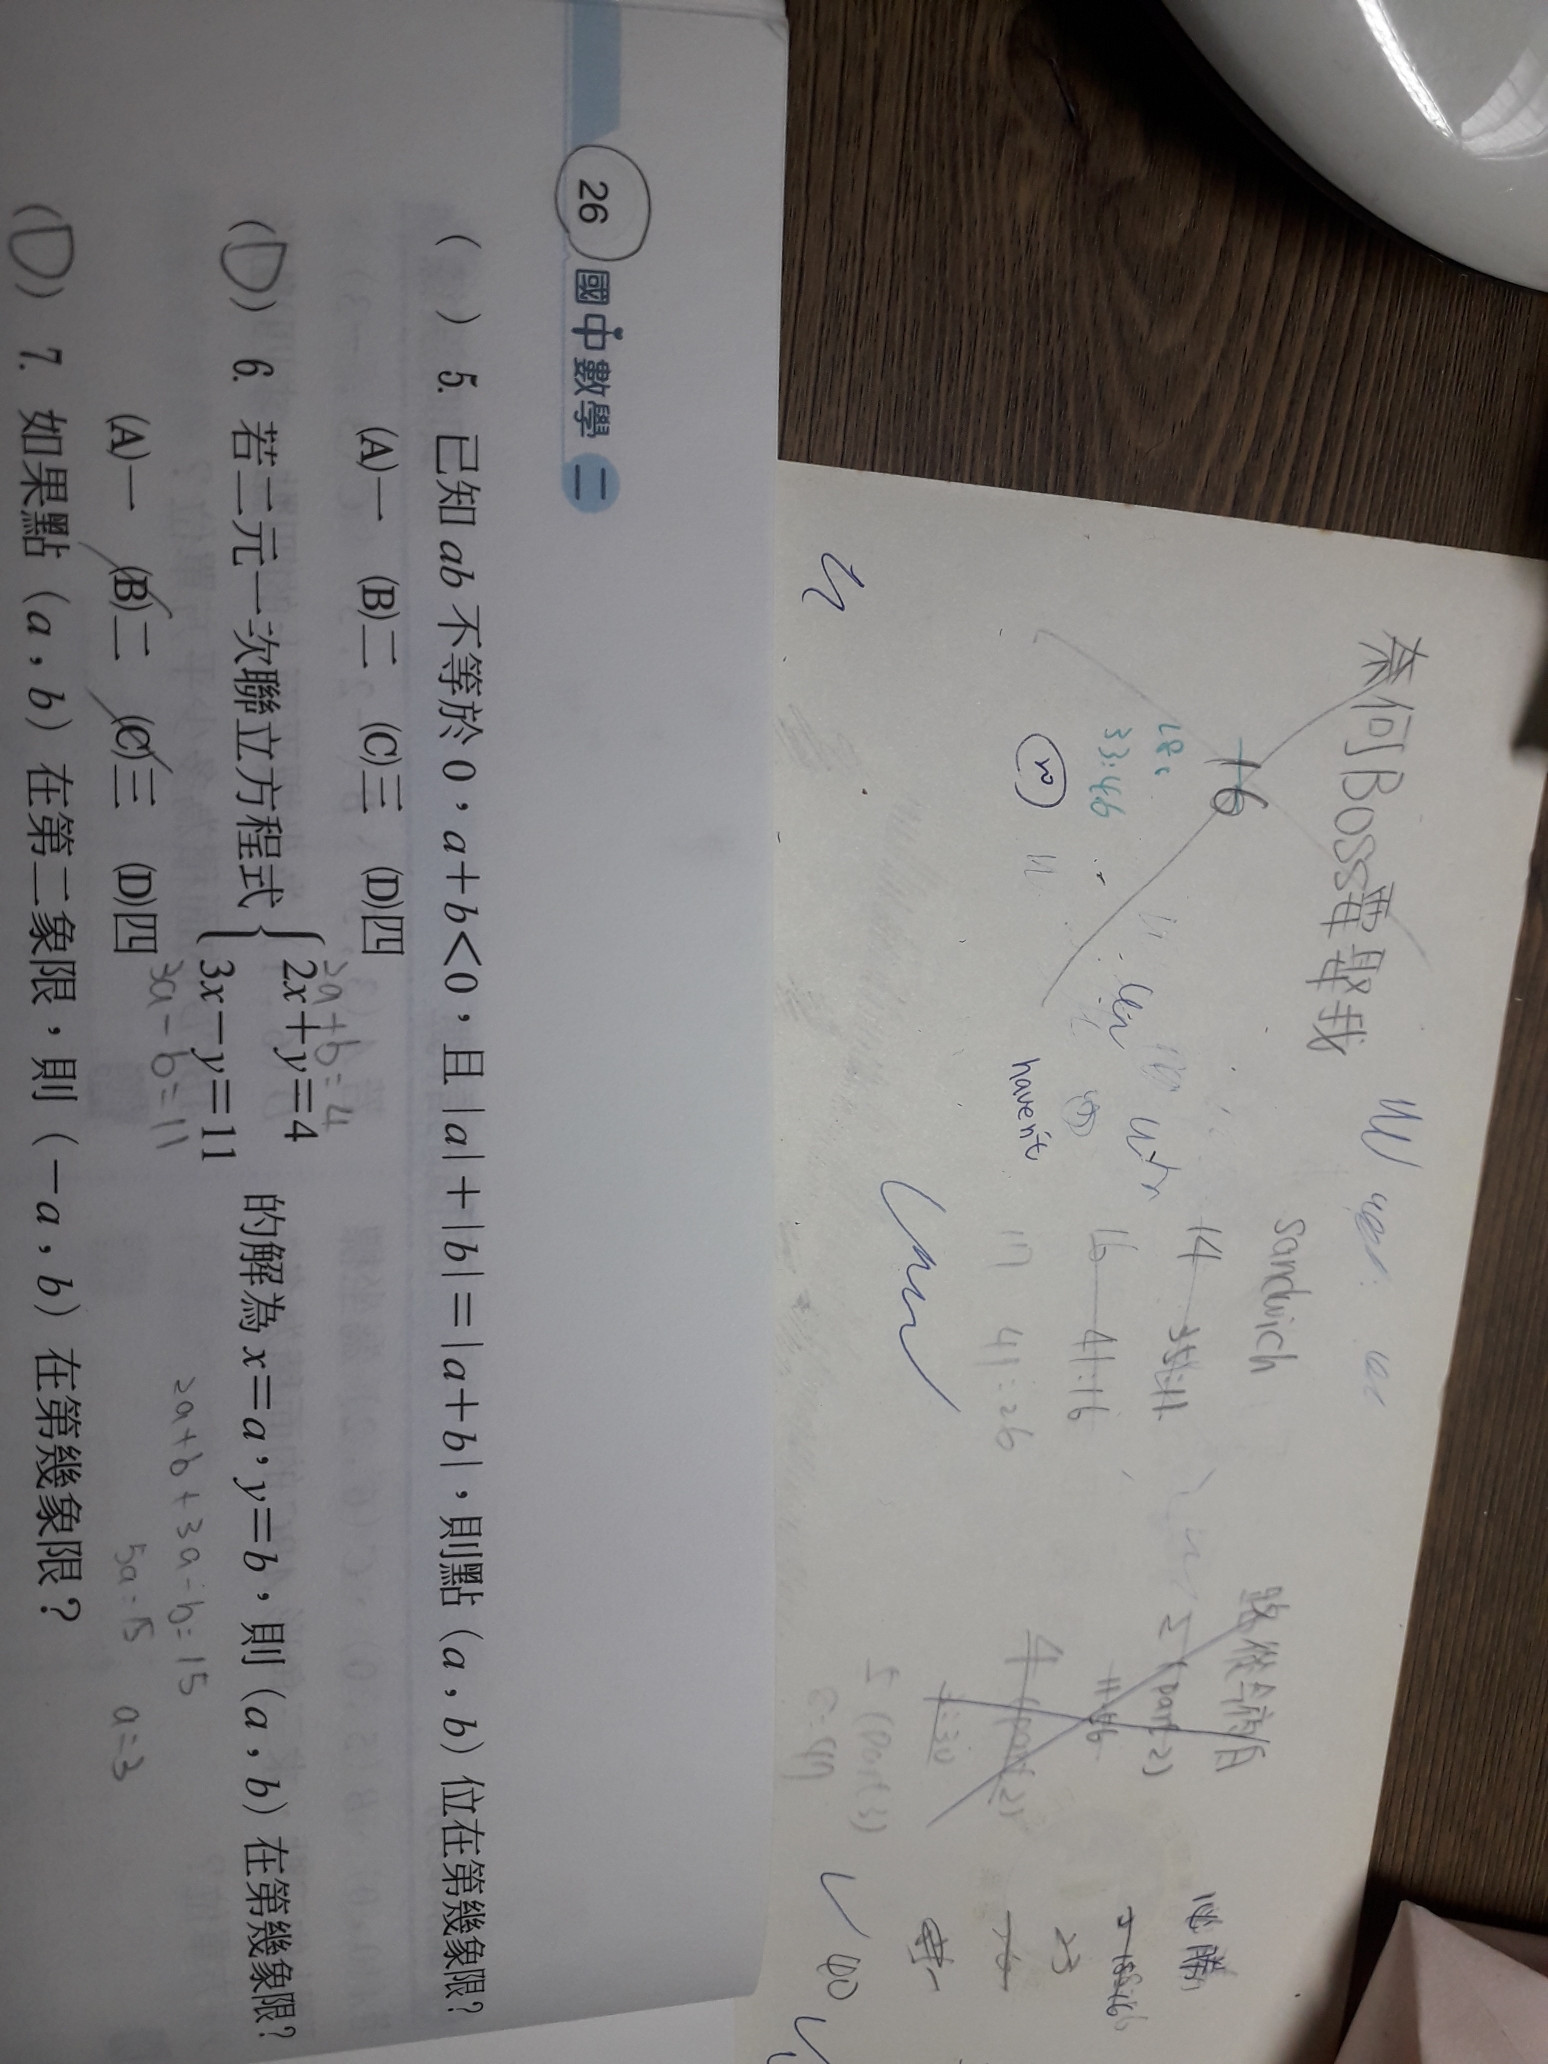 26 國中數學 二
( ) 5. 已知 ab 不等於 0，a＋b＜0，且 |a|＋|b|＝|a＋b|，則點（a，b）位在第幾象限？
(A)一 (B)二 (C)三 (D)四
(D) 6. 若二元一次聯立方程式 { 2x＋y＝4 3x－y＝11 的解為 x＝a，y＝b，則（a，b）在第幾象限？
2a+b=4
3a-b=11
2a+b+3a-b=15
5a=15 a=3
(A)一 (B)二 (C)三 (D)四
(D) 7. 如果點（a，b）在第二象限，則（－a，b）在第幾象限？
奈何Boss要娶我
16
33:46
haven't
sandwich
14 35:11
16 41:16
17 41:26
5 (part 2)
4 (part 2)
5 (part 3)
必勝
23
40